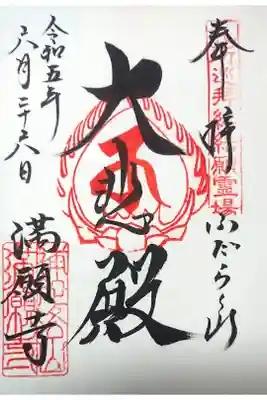 奉拝
巡拝結願霊場
ふだらく山
大悲殿
満願寺
令和五年
六月二十六日